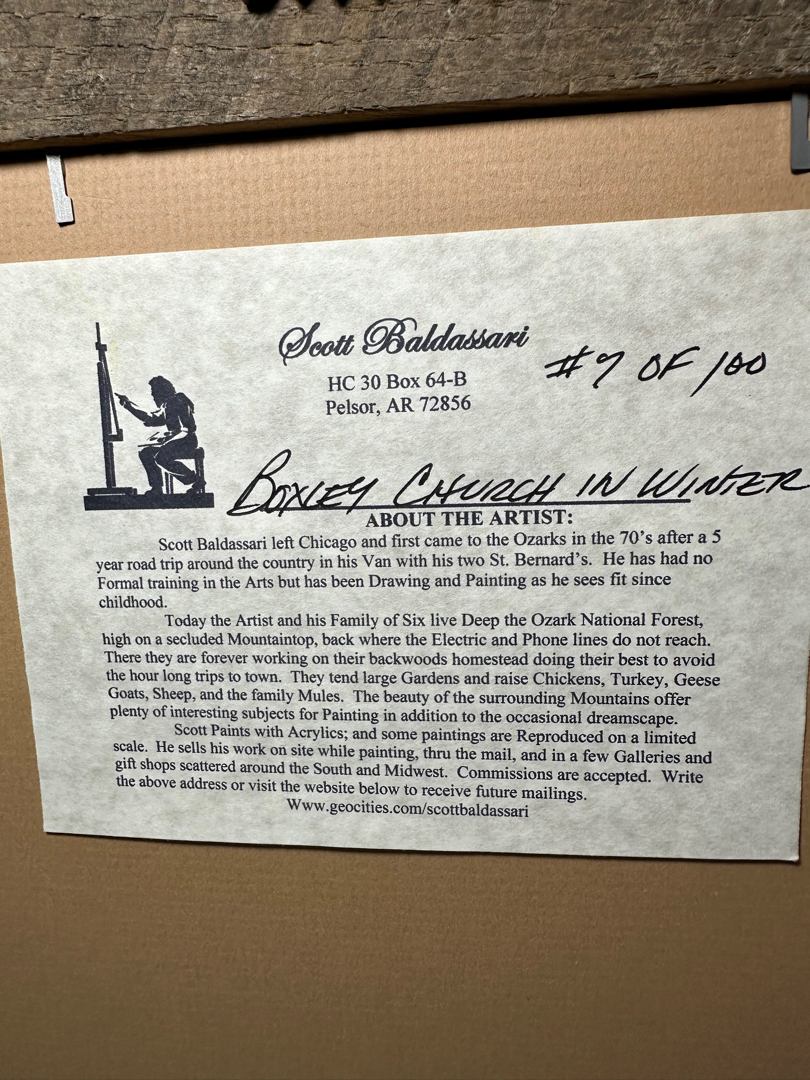 Scott Baldassari
#9 OF 100
HC 30 Box 64-B
Pelsor, AR 72856
BOXLEY CHURCH IN WINTER
ABOUT THE ARTIST:
Scott Baldassari left Chicago and first came to the Ozarks in the 70's after a 5
year road trip around the country in his Van with his two St. Bernard's. He has had no
Formal training in the Arts but has been Drawing and Painting as he sees fit since
childhood.
Today the Artist and his Family of Six live Deep the Ozark National Forest,
high on a secluded Mountaintop, back where the Electric and Phone lines do not reach.
There they are forever working on their backwoods homestead doing their best to avoid
the hour long trips to town. They tend large Gardens and raise Chickens, Turkey, Geese
Goats, Sheep, and the family Mules. The beauty of the surrounding Mountains offer
plenty of interesting subjects for Painting in addition to the occasional dreamscape.
Scott Paints with Acrylics; and some paintings are Reproduced on a limited
scale. He sells his work on site while painting, thru the mail, and in a few Galleries and
gift shops scattered around the South and Midwest. Commissions are accepted. Write
the above address or visit the website below to receive future mailings.
Www.geocities.com/scottbaldassari